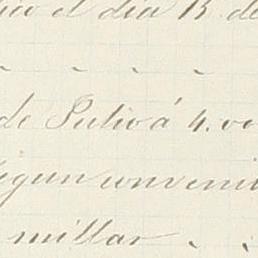 el dia 15 de
de Julio á 4.
segun conveni
millar